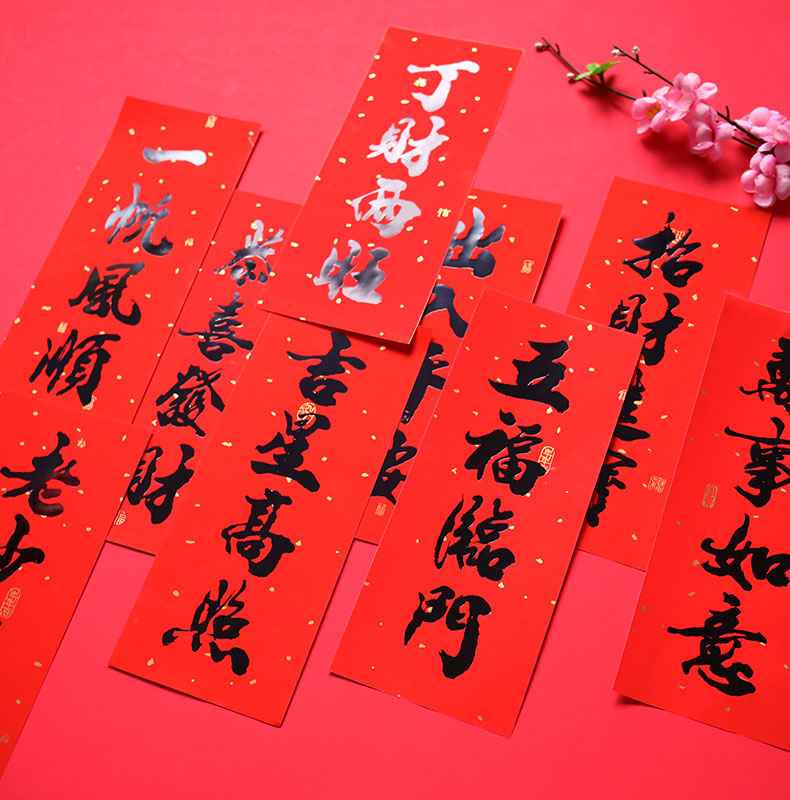 丁財兩旺
一帆風順
恭喜發財
出入平安
招財進寶
吉星高照
五福臨門
萬事如意
老少